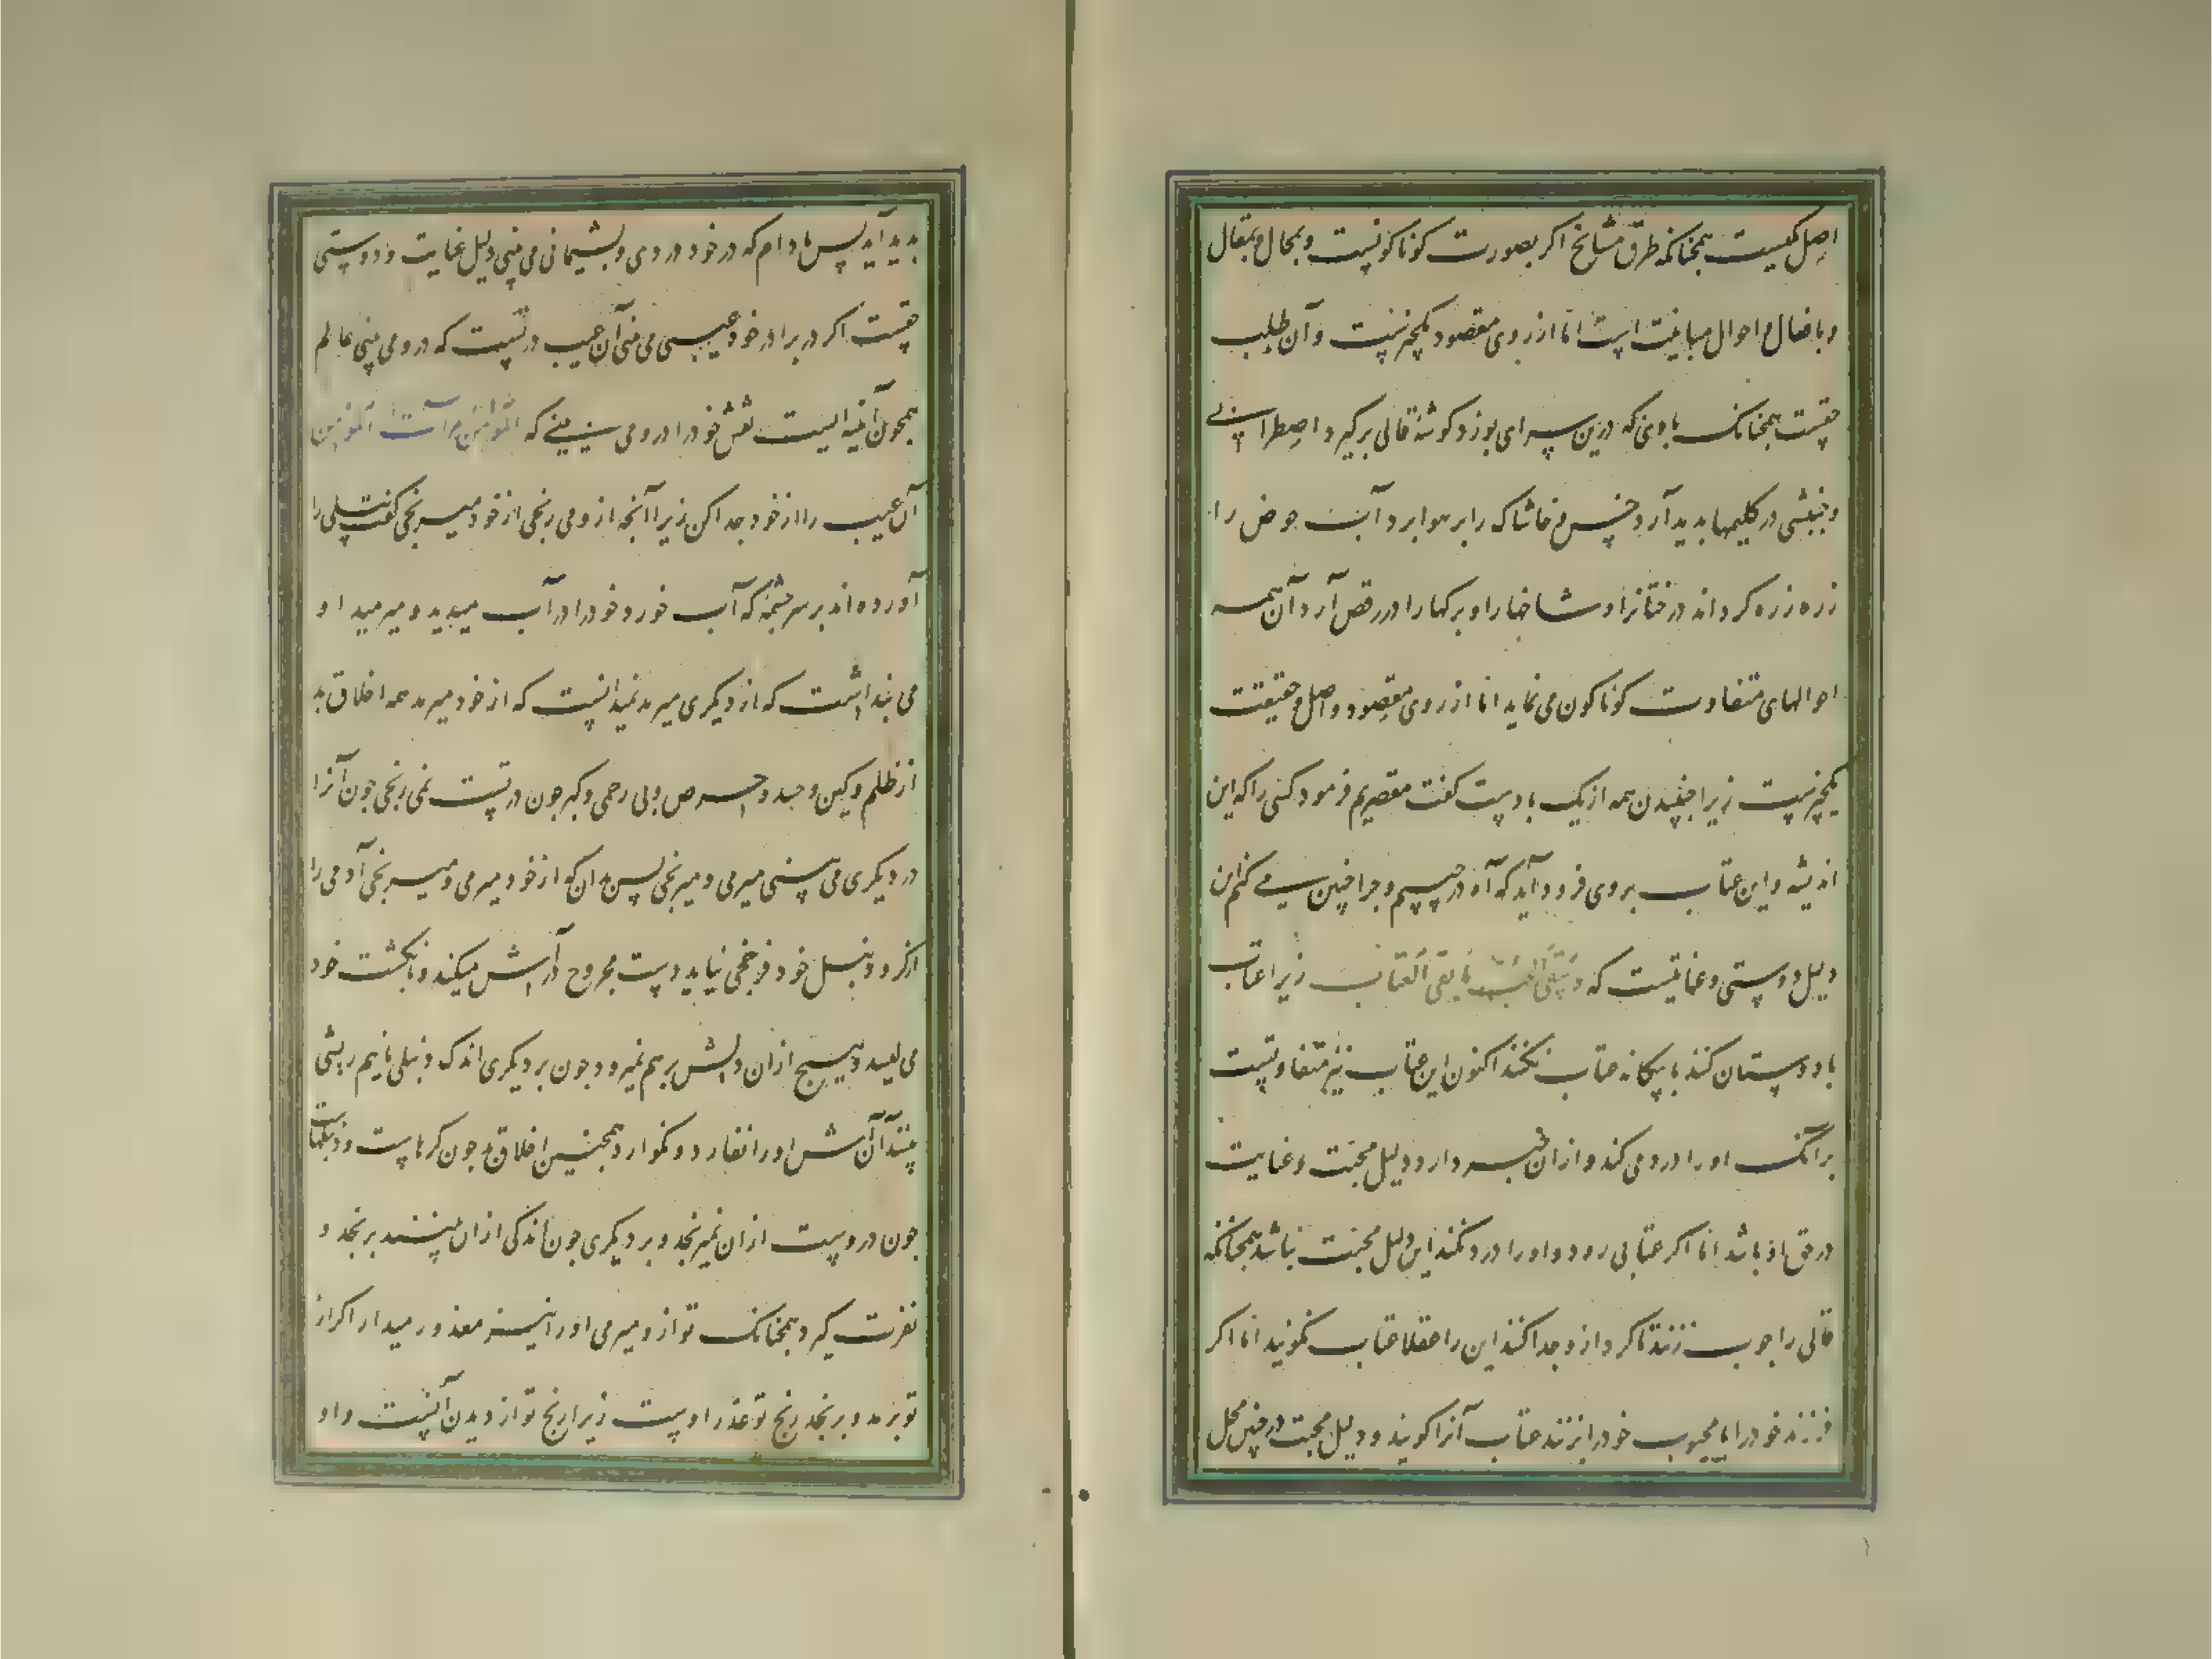 اصل یکیست همچنانکه طرق مشایخ اکر بصورت کوناکونست و بحال و بمقال
و بافعال و احوال مباینت است اما از روی مقصود یکچیزست و آن طلب
حقست همچنانک بادی که درین سرای بوزد کوشهٔ قالی برکیرد اضطرابی
و جنبشی در کلیمها بدید آرد خس و خاشاک را بر هوا برد آب حوض را
زره زره کرداند درختانرا و شاخها را و برکها را در رقص آرد آن همه
احوالهای متفاوت کوناکون می نماید اما از روی مقصود و اصل و حقیقت
یکچیزست زیرا جنبیدن همه از یک بادست کفت مقصریم فرمود کسی را که این
اندیشه و این عتاب بروی فرود آید که آه در چیستم و چرا چنین می کنم این
دلیل دوستی و عنایتست که و یبقی الحب ما بقی العتاب زیرا عتاب
با دوستان کنند با بیکانه عتاب نکنند اکنون این عتاب نیز متفاوتست
بر آنک او را درد می کند و از آن خبر دارد دلیل محبت و عنایت
در حق او باشد اما اکر عتابی رود و او را درد نکند این دلیل محبت نباشد همچنانکه
قالی را چوب زنند تا کرد ازو جدا کنند این را عقلا عتاب نکویند اما اکر
فرزند خود را یا محبوب خود را بزنند عتاب آنرا کویند و دلیل محبت در چنین محل
بدید آید پس مادام که در خود دردی و پشیمانی می بینی دلیل عنایت و دوستی
حقست اکر در برادر خود عیبی می بینی آن عیب در تست که درو می بینی عالم
همچون آئینه ایست نقش خود را درو می بینی که المؤمن مرآت المؤمن
آن عیب را از خود جدا کن زیرا آنچه ازو می رنجی از خود میرنجی کفت پیلی را
آورده اند بر سر چشمهٔ که آب خورد خود را در آب میدید و میرمید او
می بنداشت که از دیکری میرمد نمیدانست که از خود میرمد همه اخلاق بد
از ظلم و کین و حسد و حرص و بی رحمی و کبر چون در تست نمی رنجی چون آنرا
در دیکری می بینی میرمی و میرنجی پس بدان که از خود میرمی و میرنجی آدمی را
از کر و دنبل خود فرخجی نیاید دست مجروح در آش میکند و بانکشت خود
می لیسد و هیچ از آن دلش بر هم نمیرود چون بر دیکری اندک دنبلی یا نیم ریشی
بیند آن آش او را نفارد و نکوارد همچنین اخلاق چون کرهاست و دنبلهاست
چون دروست از آن نمیرنجد و بر دیکری چون اندکی از آن بیند برنجد و
نفرت کیرد همچنانک تو ازو میرمی او را نیز معذور میدار اکر از
تو برمد و برنجد رنج تو عذر اوست زیرا رنج تو از دیدن آنست و او